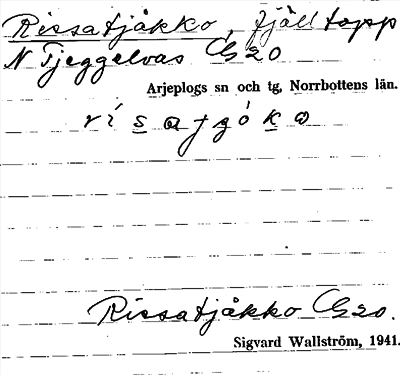 Rissatjåkko, fjälltopp
N Tjeggelvas G20
Arjeplogs sn och tg, Norrbottens län.
Rissatjåkko G20.
Sigvard Wallström, 1941.